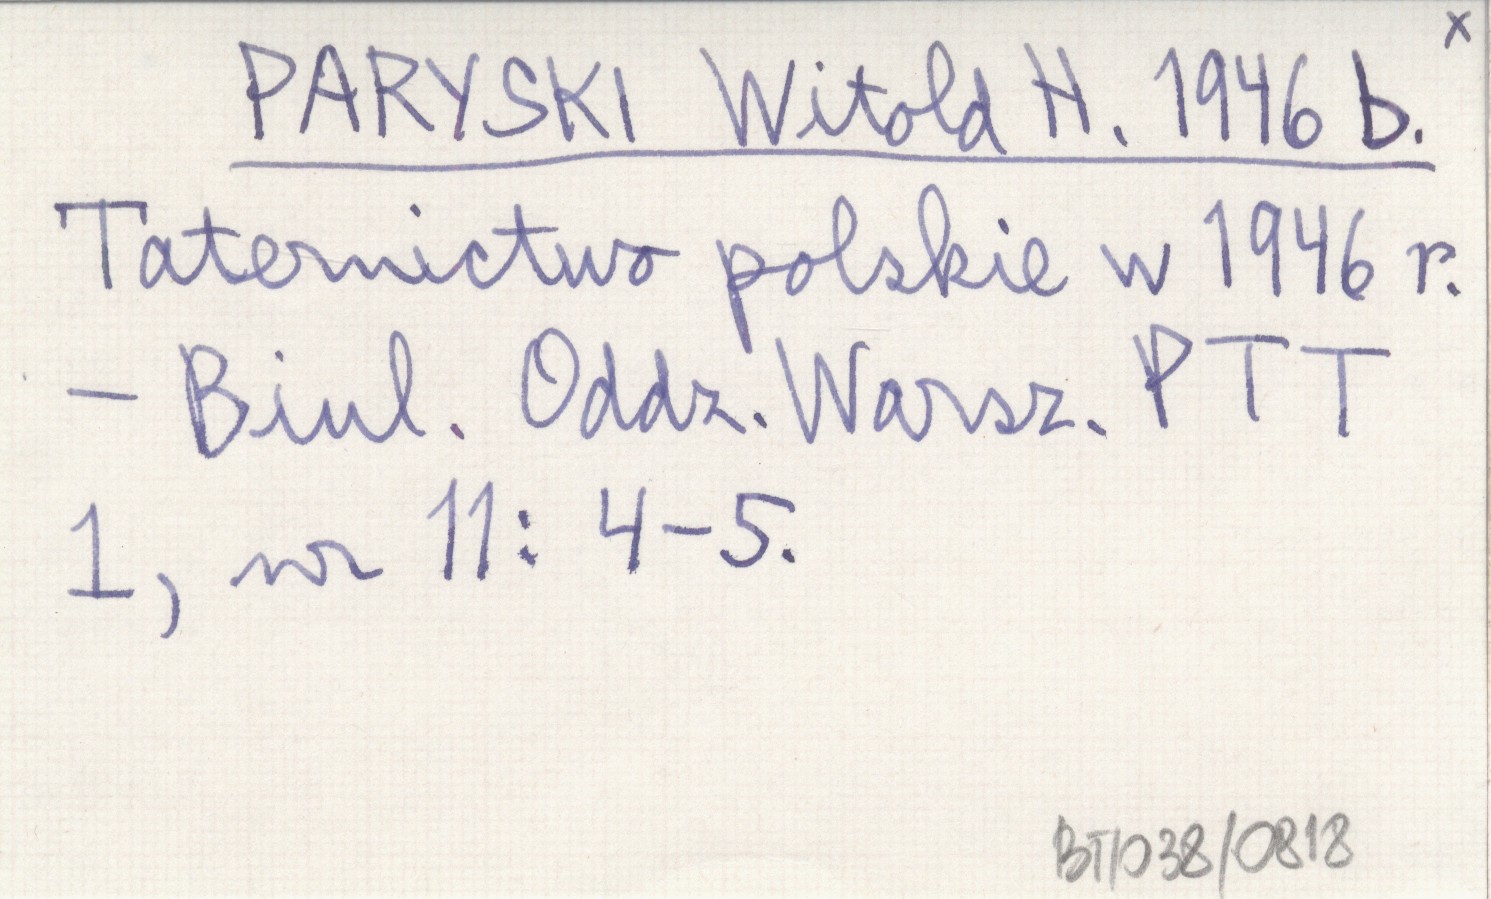 x
PARYSKI Witold H. 1946 b.
Taternictwo polskie w 1946 r.
— Biul. Oddz. Warsz. PTT
1, nr 11: 4-5.
BT/038/0818